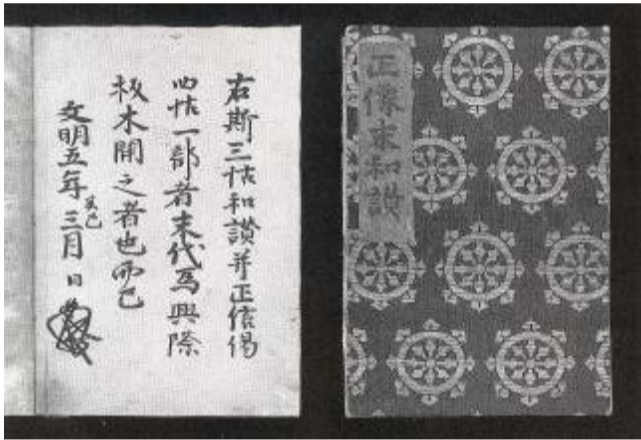 右斯三帖和讃并正信偈
四帖一部者末代為興際
板木開之者也而已
文明五年癸巳三月 日
正像末和讃